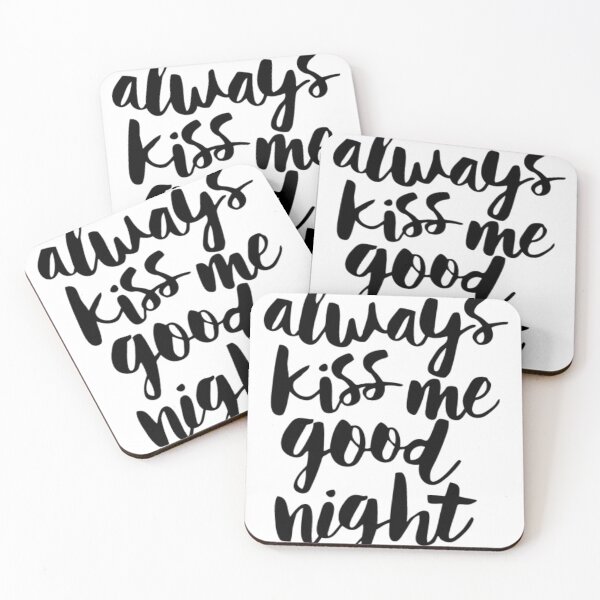 always
kiss me
always
kiss me
good
always
kiss me
good
night
always
kiss me
good
night